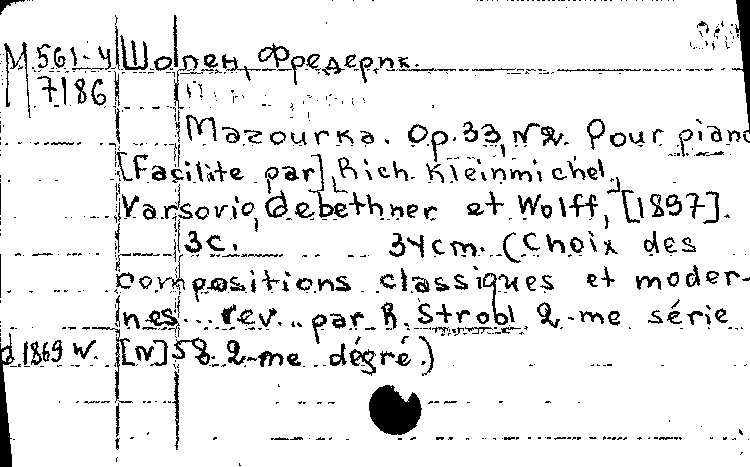 М 561-4 Шопен, Фредерик.
7186
Mazourka. Op. 33, N2. Pour piano
[Facilite par] Rich. Kleinmichel.
Varsovie, Gebethner et Wolff, [1897].
3 c. 34 cm. (Choix des
compositions classiques et moder-
nes... rev... par R. Strobl 2-me série
d 1869 w. [N] 58. 2-me dégré.)